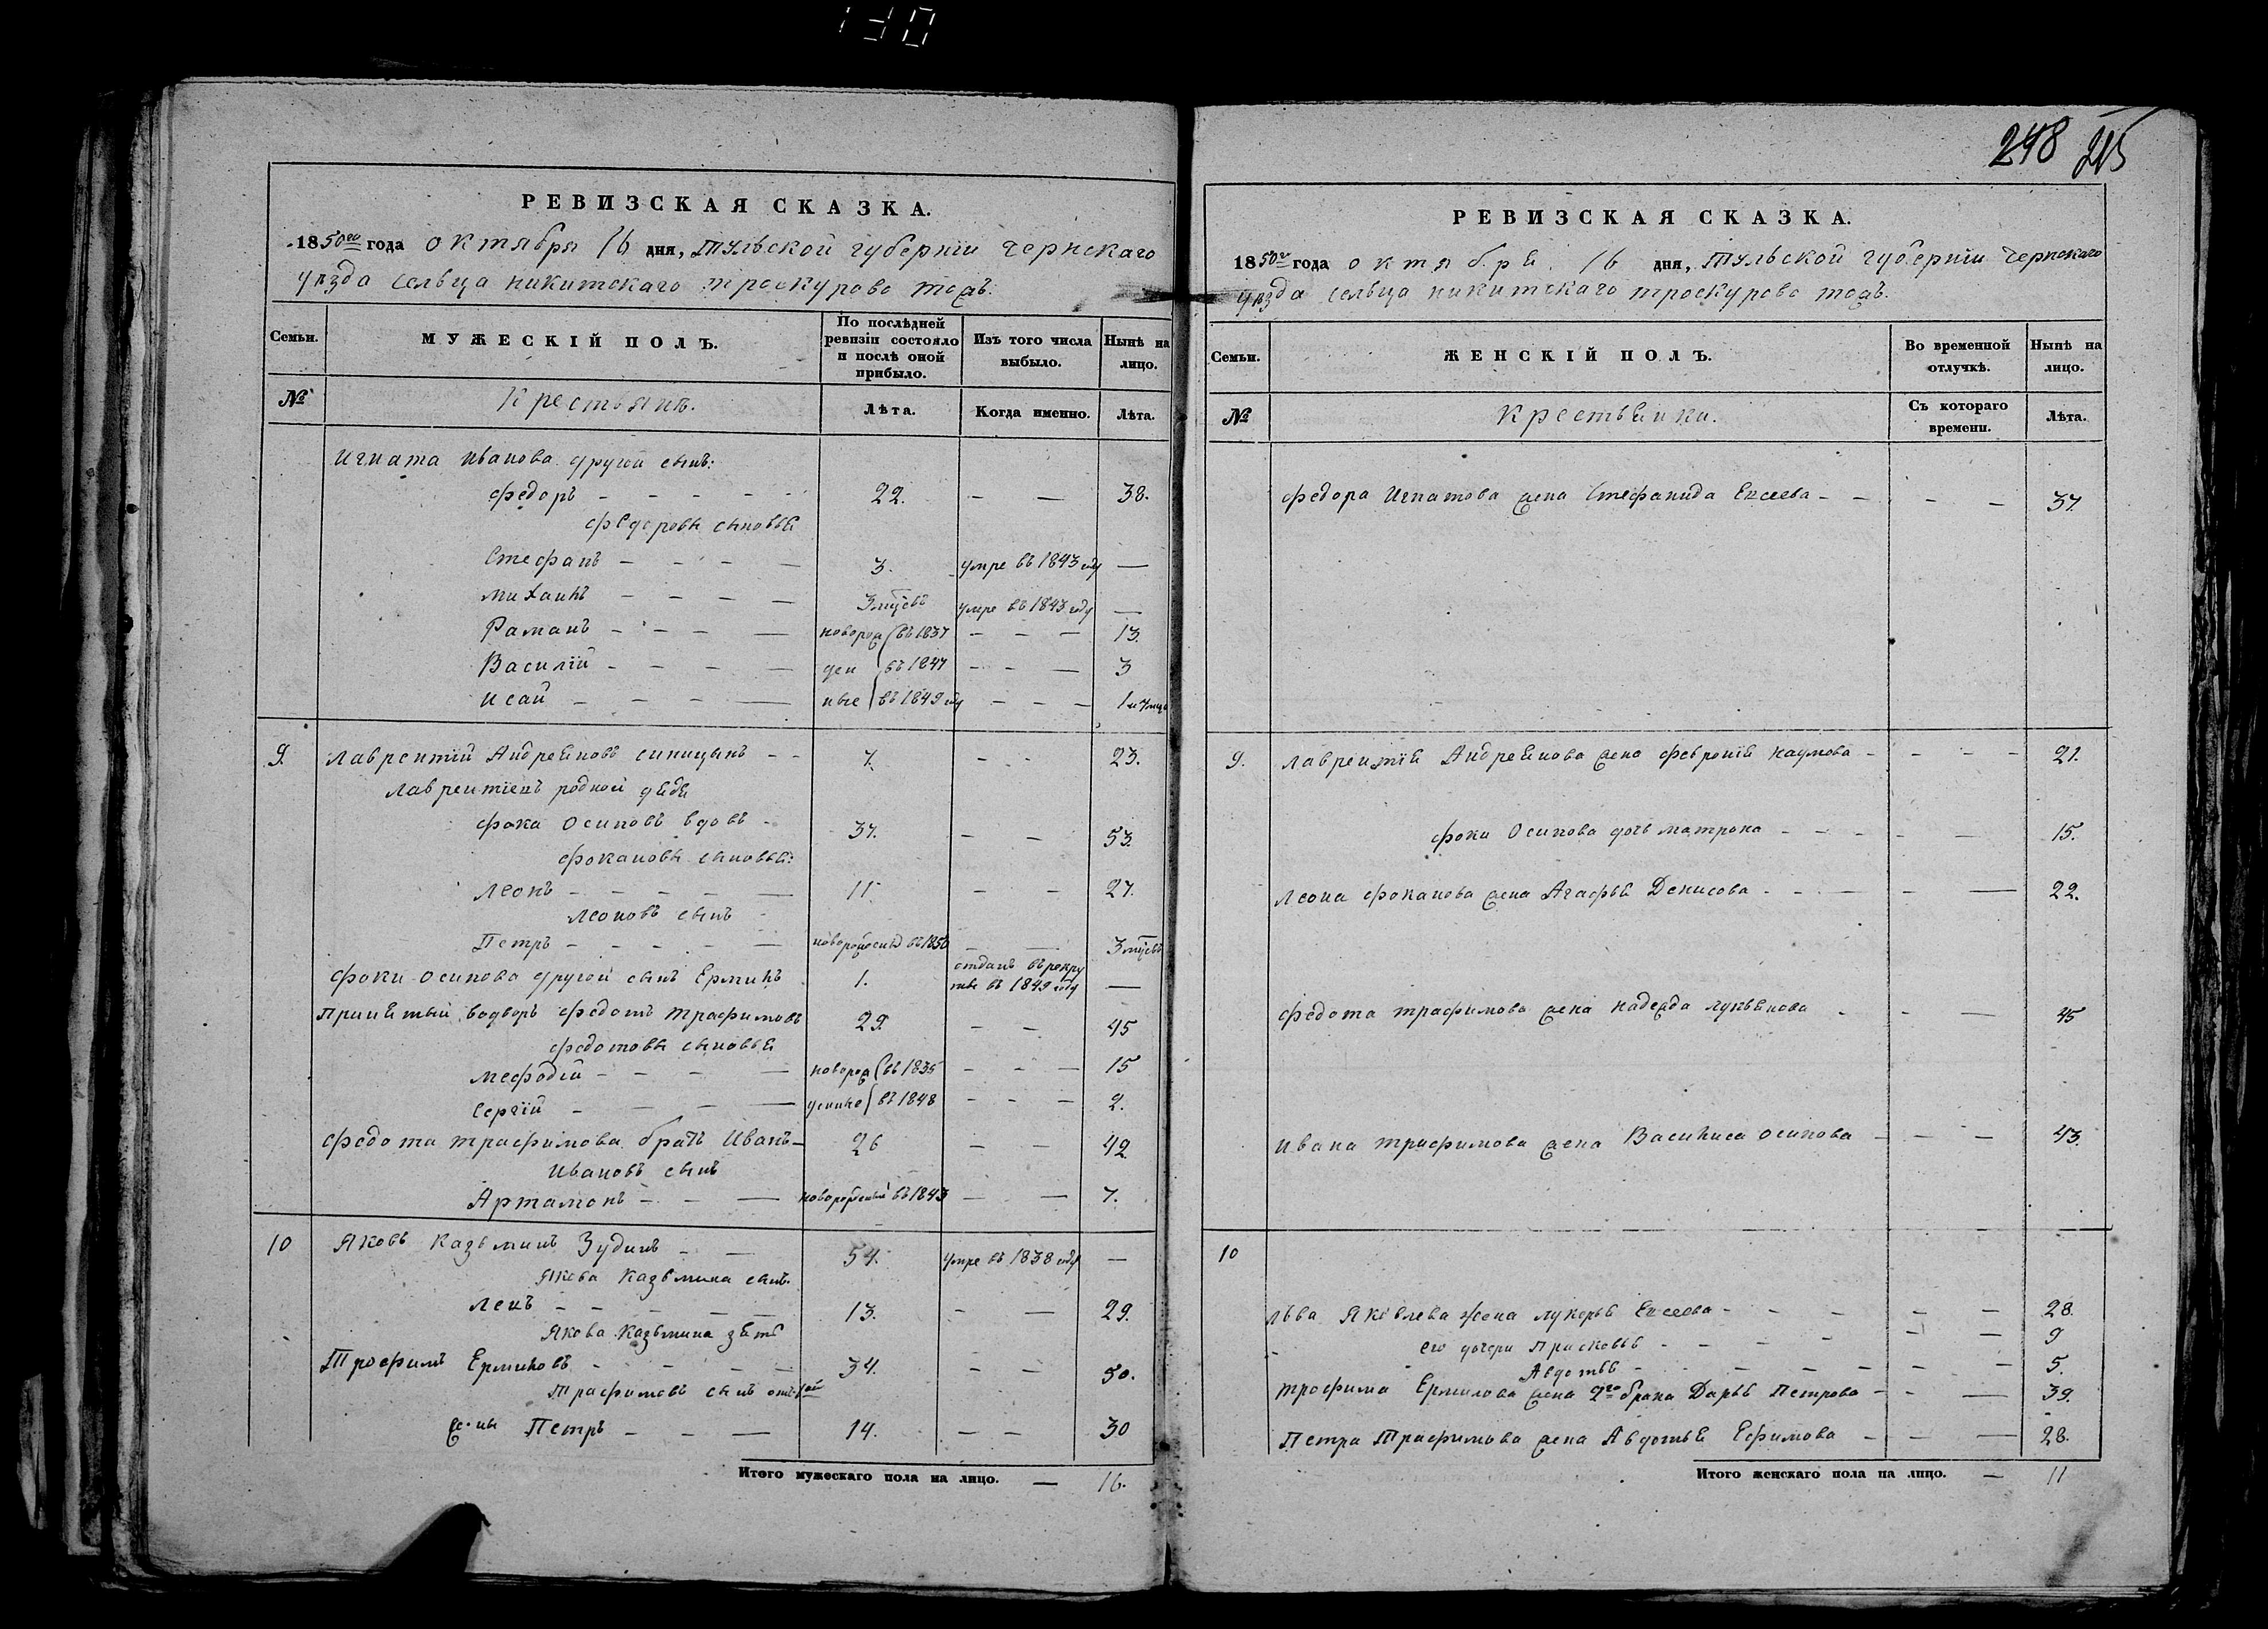 130
РЕВИЗСКАЯ СКАЗКА.
1850го года октября 16 дня, Тульской губерніи Чернскаго
уѣзда сельца никитскаго троскурово тожъ.
Семьи.
МУЖЕСКІЙ ПОЛЪ.
По послѣдней ревизіи состояло и послѣ оной прибыло.
Изъ того числа выбыло.
Нынѣ на лицо.
№
Крестьянѣ.
Лѣта.
Когда именно.
Лѣта.
Игната Иванова другой сынъ:
Федоръ — 22. — — 38.
Федоровы сыновья
Стефанъ — 3. умре въ 1843 году —
Михаилъ — 3 мцсвъ умре въ 1843 году —
Раманъ — новорож въ 1837 — — 13.
Василій — ден въ 1847 — — 3
Исай — ные въ 1849 году — — 1 и 7 мцв
9. Лаврентій Андреяновъ синицынъ — 7. — — 23.
Лаврентіевъ родной дядя
Фока Осиповъ вдовъ — 37. — — 53.
Фокановы сыновья:
Леонъ — 11. — — 27.
Леоновъ сынъ
Петръ — новорожденый въ 1850 — — 3 мцсвъ
Фоки Осипова другой сынъ Ермилъ 1. отданъ въ рекру
ты въ 1849 году —
Принятый водворъ Федотъ Трафимовъ 29. — — 45
Федотовы сыновья
Мефодій — новорож въ 1835 — — 15
Сергій — денные въ 1848 — — 2.
Федота трафимова братъ Иванъ — 26 — — 42
Ивановъ сынъ
Артамонъ — новорожденый въ 1843 — — 7.
10 Яковъ Казьминъ Зудинъ — 54. умре въ 1838 году —
Якова Казьмина сынъ.
Левъ — 13. — — 29.
Якова Казьмина зять
Трофимъ Ермиловъ — 34. — — 50.
Трафимовъ сынъ от 1ой
жены Петръ — 14. — — 30
Итого мужескаго пола на лицо. — 16.
248 215
РЕВИЗСКАЯ СКАЗКА.
1850го года октября 16 дня, Тульской губерніи Чернскаго
уѣзда сельца никитскаго троскурово тожъ.
Семьи.
ЖЕНСКІЙ ПОЛЪ.
Во временной отлучкѣ.
Нынѣ на лицо.
№
Крестьянки.
Съ котораго времени.
Лѣта.
Федора Игнатова жена Стефанида Евсеева — — — 37.
9. Лаврентія Андреянова жена Февронія Наумова — — — 21.
Фоки Осипова дочь Матрона — — — 15.
Леона Фоканова жена Агафья Денисова — — — 22.
Федота трафимова жена Надежда Лукьянова — — 45
Ивана трафимова жена Василиса Осипова — — — 43.
10
Льва Яковлева жена Лукерья Евсеева — — — 28.
его дочери Прасковья — — — 9
Авдотья — — — 5.
Трофима Ермилова жена 2го брака Дарья Петрова — — 39.
Петра Трафимова жена Авдотья Ефимова — — — 28.
Итого женскаго пола на лицо. — 11